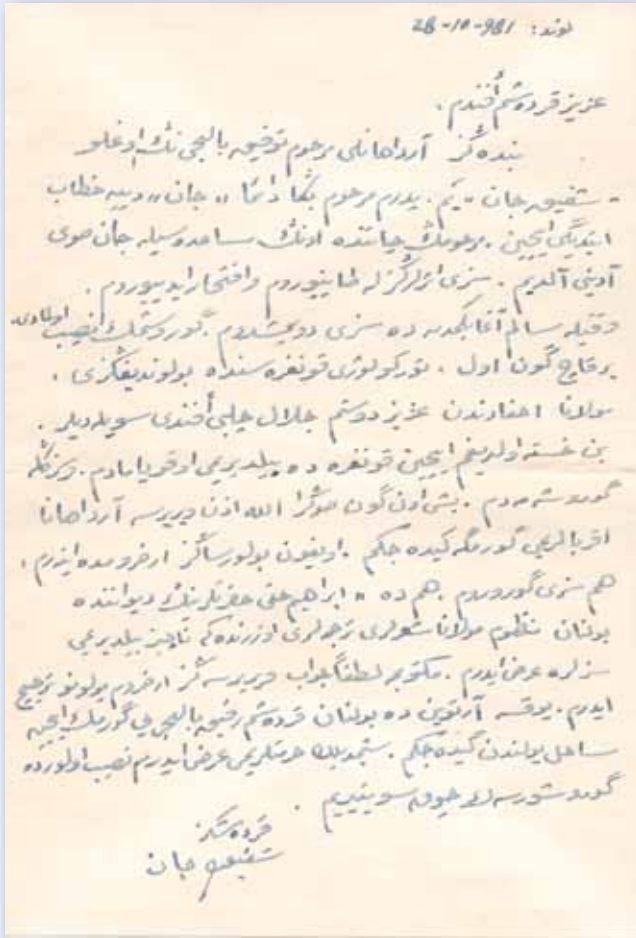 لوند: 28-10-981
عزيز قردەشم أفندم.
بندەڭز آرداهانلى مرحوم توفيق بالجى نڭ اوغلو
- شفيق جان - يم. پدرم مرحوم بڭا دائما «جان» دييه خطاب
ايتديگى ايچين. مرحومڭ حياتنده اونڭ مساعدەسيله جان صوى
آدينى آلديم. سزى اثرلرڭزله طانييوروم و افتخار ايدييوروم.
وقتيله سالم آغا بگدن ده سزى گوروشمك نصيب اولمادى
بر قاچ گون اول، توركولوژى قونفرەسنده بولونديغڭزى،
مولانا احفادندن عزيز دوستم جلال چلبى أفندى سويلەديلر.
بن خسته اولديغم ايچين قونفرەده بيلديريمى اوقويامادم. سزڭله
گوروشەمەدم. بش اون گون صوڭرا الله اذن ويريرسه آرداهانا
اقربالريمى گورمگه گيدەجگم. اويغون بولورساڭز ارضرومده اينرم،
هم سزى گوروروم. هم ده «ابراهيم حقى حضرتلرينڭ ديواننده
بولنان منظوم مولانا شعرلرى ترجمەلرى اوزرندەكى ناچيز بيلديريمى
سزلره عرض ايدرم. مكتوبمه لطفاً جواب ويريرسەڭز ارضروم يولونو ترجيح
ايدرم. يوقسه آرتوين ده بولنان قردەشم رفيق بالجى يى گورمك ايچين
ساحل يولندن گيدەجگم. شيمديلك حرمتلريمى عرض ايدرم نصيب اولورده
گوروشورسەك چوق سوينيريم.
قردەشڭز
شفيق جان